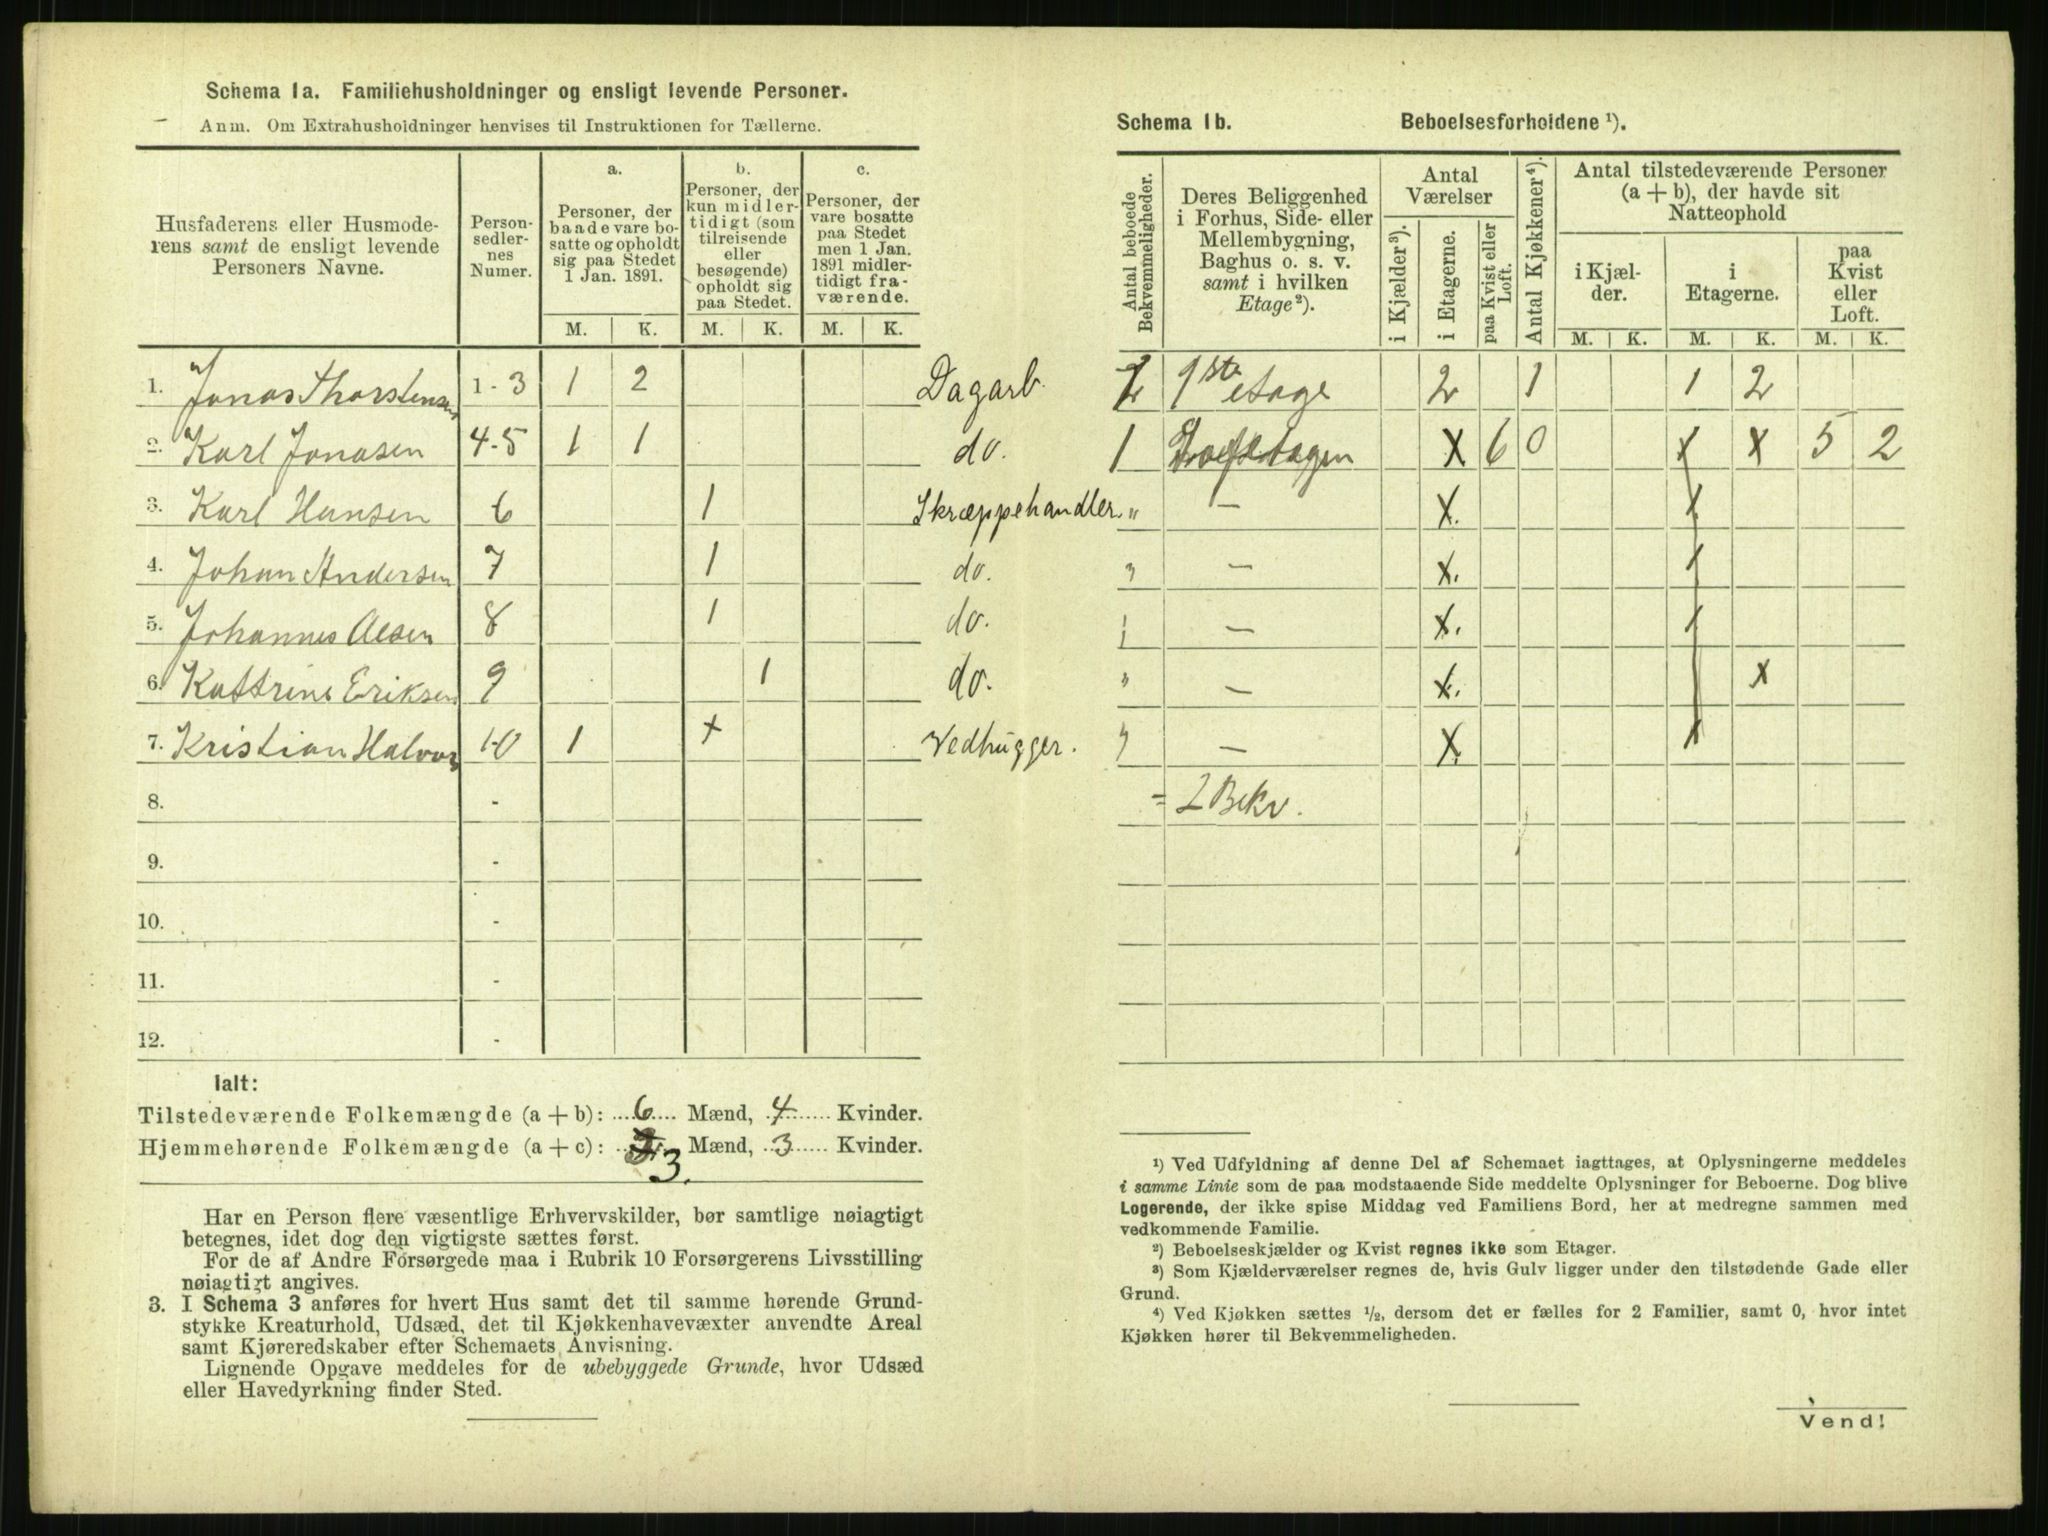 Schema 1a. Familiehusholdninger og ensligt levende Personer.
Anm. Om Extrahusholdninger henvises til Instruktionen for Tællerne.
Husfaderens eller Husmode-
rens samt de ensligt levende
Personers Navne.
Person-
sedler-
nes
Numer.
a.
Personer, der
baade vare bo-
satte og opholdt
sig paa Stedet
1 Jan. 1891.
b.
Personer, der
kun midler-
tidigt (som
tilreisende
eller
besøgende)
opholdt sig
paa Stedet.
c.
Personer, der
vare bosatte
paa Stedet
men 1 Jan.
1891 midler-
tidigt fra-
værende.
M. K. M. K. M. K.
1. Jonas Thorstensen 1-3 1 2 Dagarb.
2. Karl Jonasen 4-5 1 1 do.
3. Karl Hansen 6 1 Skræppehandler.
4. Johan Andersen 7 1 do.
5. Johannes Olsen 8 1 do.
6. Kattrine Eriksen 9 1 do.
7. Kristian Halvors 10 1 x Vedhugger.
8. -
9. -
10. -
11. -
12. -
Ialt:
Tilstedeværende Folkemængde (a + b): 6 Mænd, 4 Kvinder.
Hjemmehørende Folkemængde (a + c): 3. Mænd, 3 Kvinder.
Har en Person flere væsentlige Erhvervskilder, bør samtlige nøiagtigt
betegnes, idet dog den vigtigste sættes først.
For de af Andre Forsørgede maa i Rubrik 10 Forsørgerens Livsstilling
nøiagtigt angives.
3. I Schema 3 anføres for hvert Hus samt det til samme hørende Grund-
stykke Kreaturhold, Udsæd, det til Kjøkkenhavevæxter anvendte Areal
samt Kjøreredskaber efter Schemaets Anvisning.
Lignende Opgave meddeles for de ubebyggede Grunde, hvor Udsæd
eller Havedyrkning finder Sted.
Schema 1b. Beboelsesforholdene ¹).
Antal beboede
Bekvemmeligheder.
Deres Beliggenhed
i Forhus, Side- eller
Mellembygning,
Baghus o. s. v.
samt i hvilken
Etage²).
Antal
Værelser
i Kjælder³).
i Etagerne.
paa Kvist eller
Loft.
Antal Kjøkkener⁴).
Antal tilstedeværende Personer
(a + b), der havde sit
Natteophold
i Kjæl-
der.
i
Etagerne.
paa
Kvist
eller
Loft.
M. K. M. K. M. K.
1ste etage 2 1 1 2
1 x 6 0 x x 5 2
" — x. x
" — x. x
— x. x
" — x. x x
" — x. x
= 2 Bekv.
¹) Ved Udfyldning af denne Del af Schemaet iagttages, at Oplysningerne meddeles
i samme Linie som de paa modstaaende Side meddelte Oplysninger for Beboerne. Dog blive
Logerende, der ikke spise Middag ved Familiens Bord, her at medregne sammen med
vedkommende Familie.
²) Beboelseskjælder og Kvist regnes ikke som Etager.
³) Som Kjælderværelser regnes de, hvis Gulv ligger under den tilstødende Gade eller
Grund.
⁴) Ved Kjøkken sættes ½, dersom det er fælles for 2 Familier, samt 0, hvor intet
Kjøkken hører til Bekvemmeligheden.
Vend!